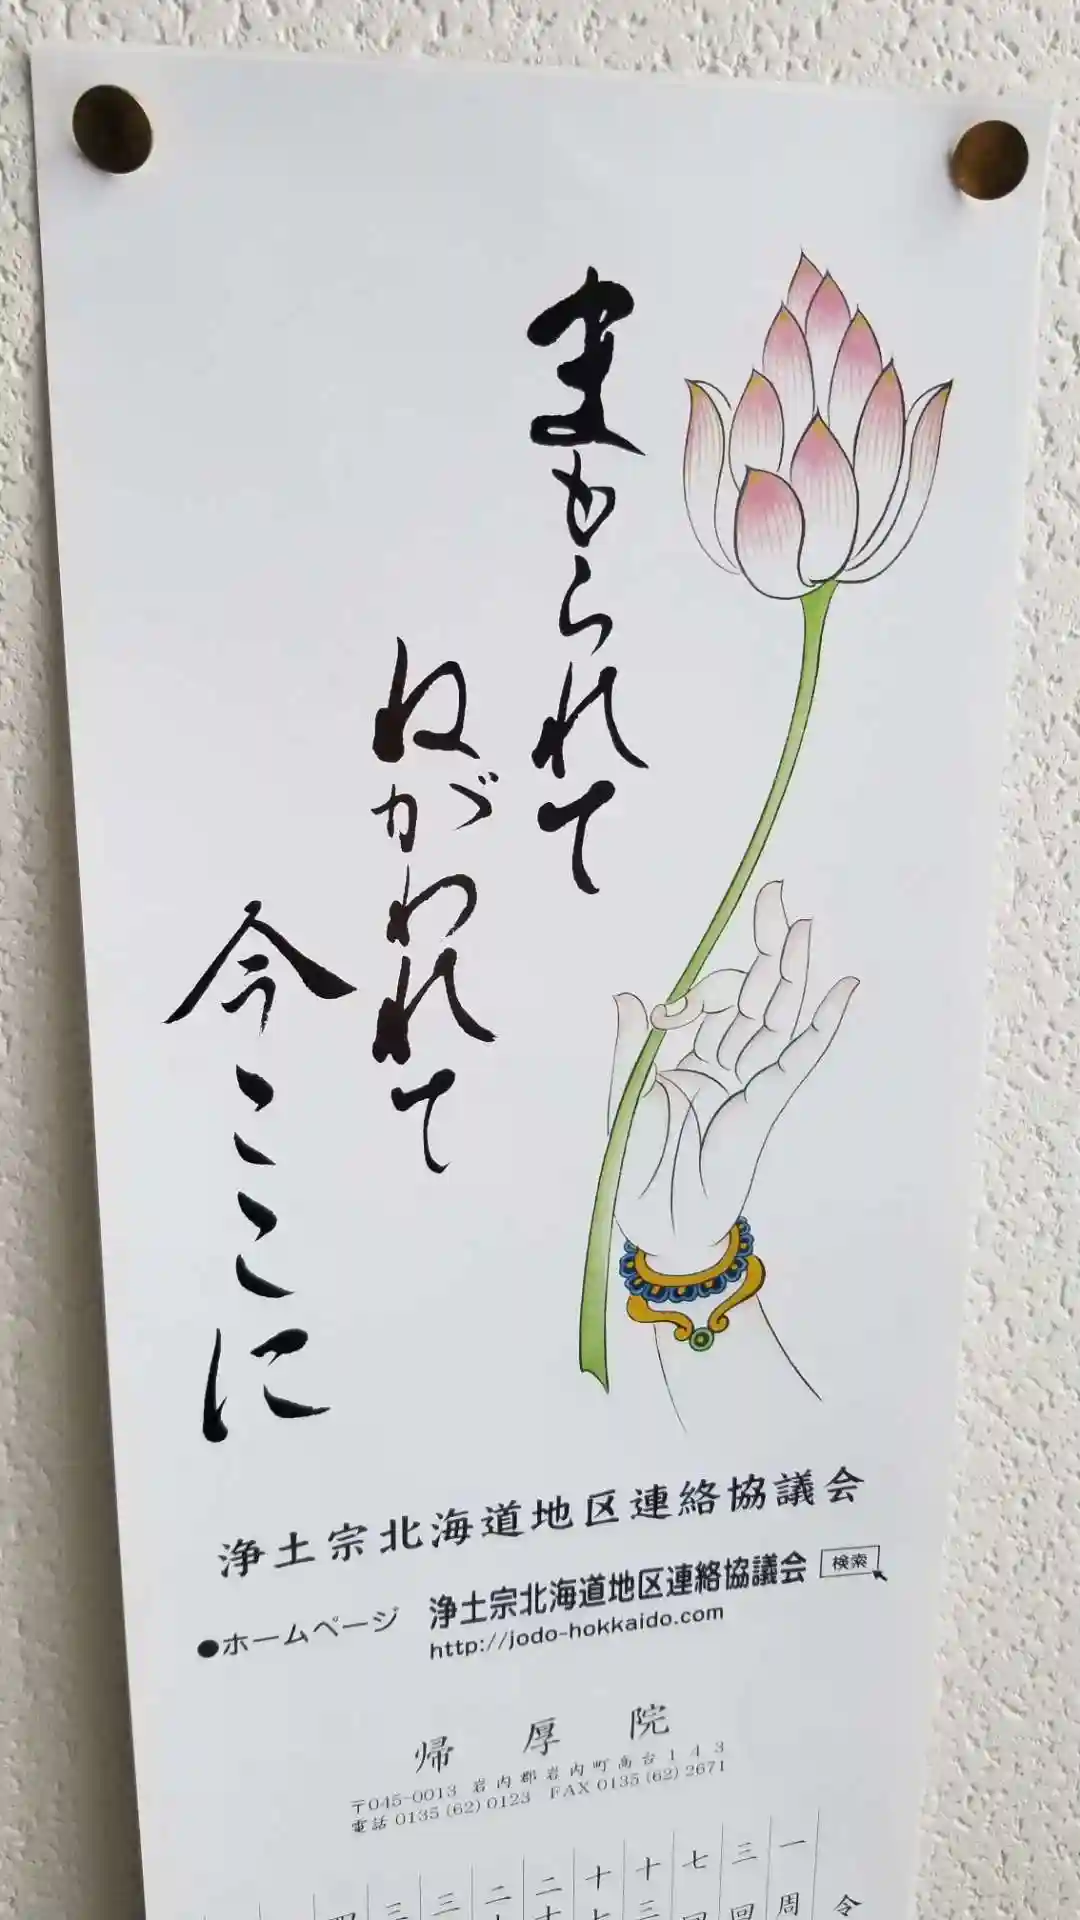 まもられて
ねがわれて
今ここに
浄土宗北海道地区連絡協議会
●ホームページ 浄土宗北海道地区連絡協議会 検索
http://jodo-hokkaido.com
帰厚院
〒045-0013 岩内郡岩内町高台143
電話 0135(62)0123 FAX 0135(62)2671
令
一周
三回
七回
十三
十七
二十
二
三
三
四